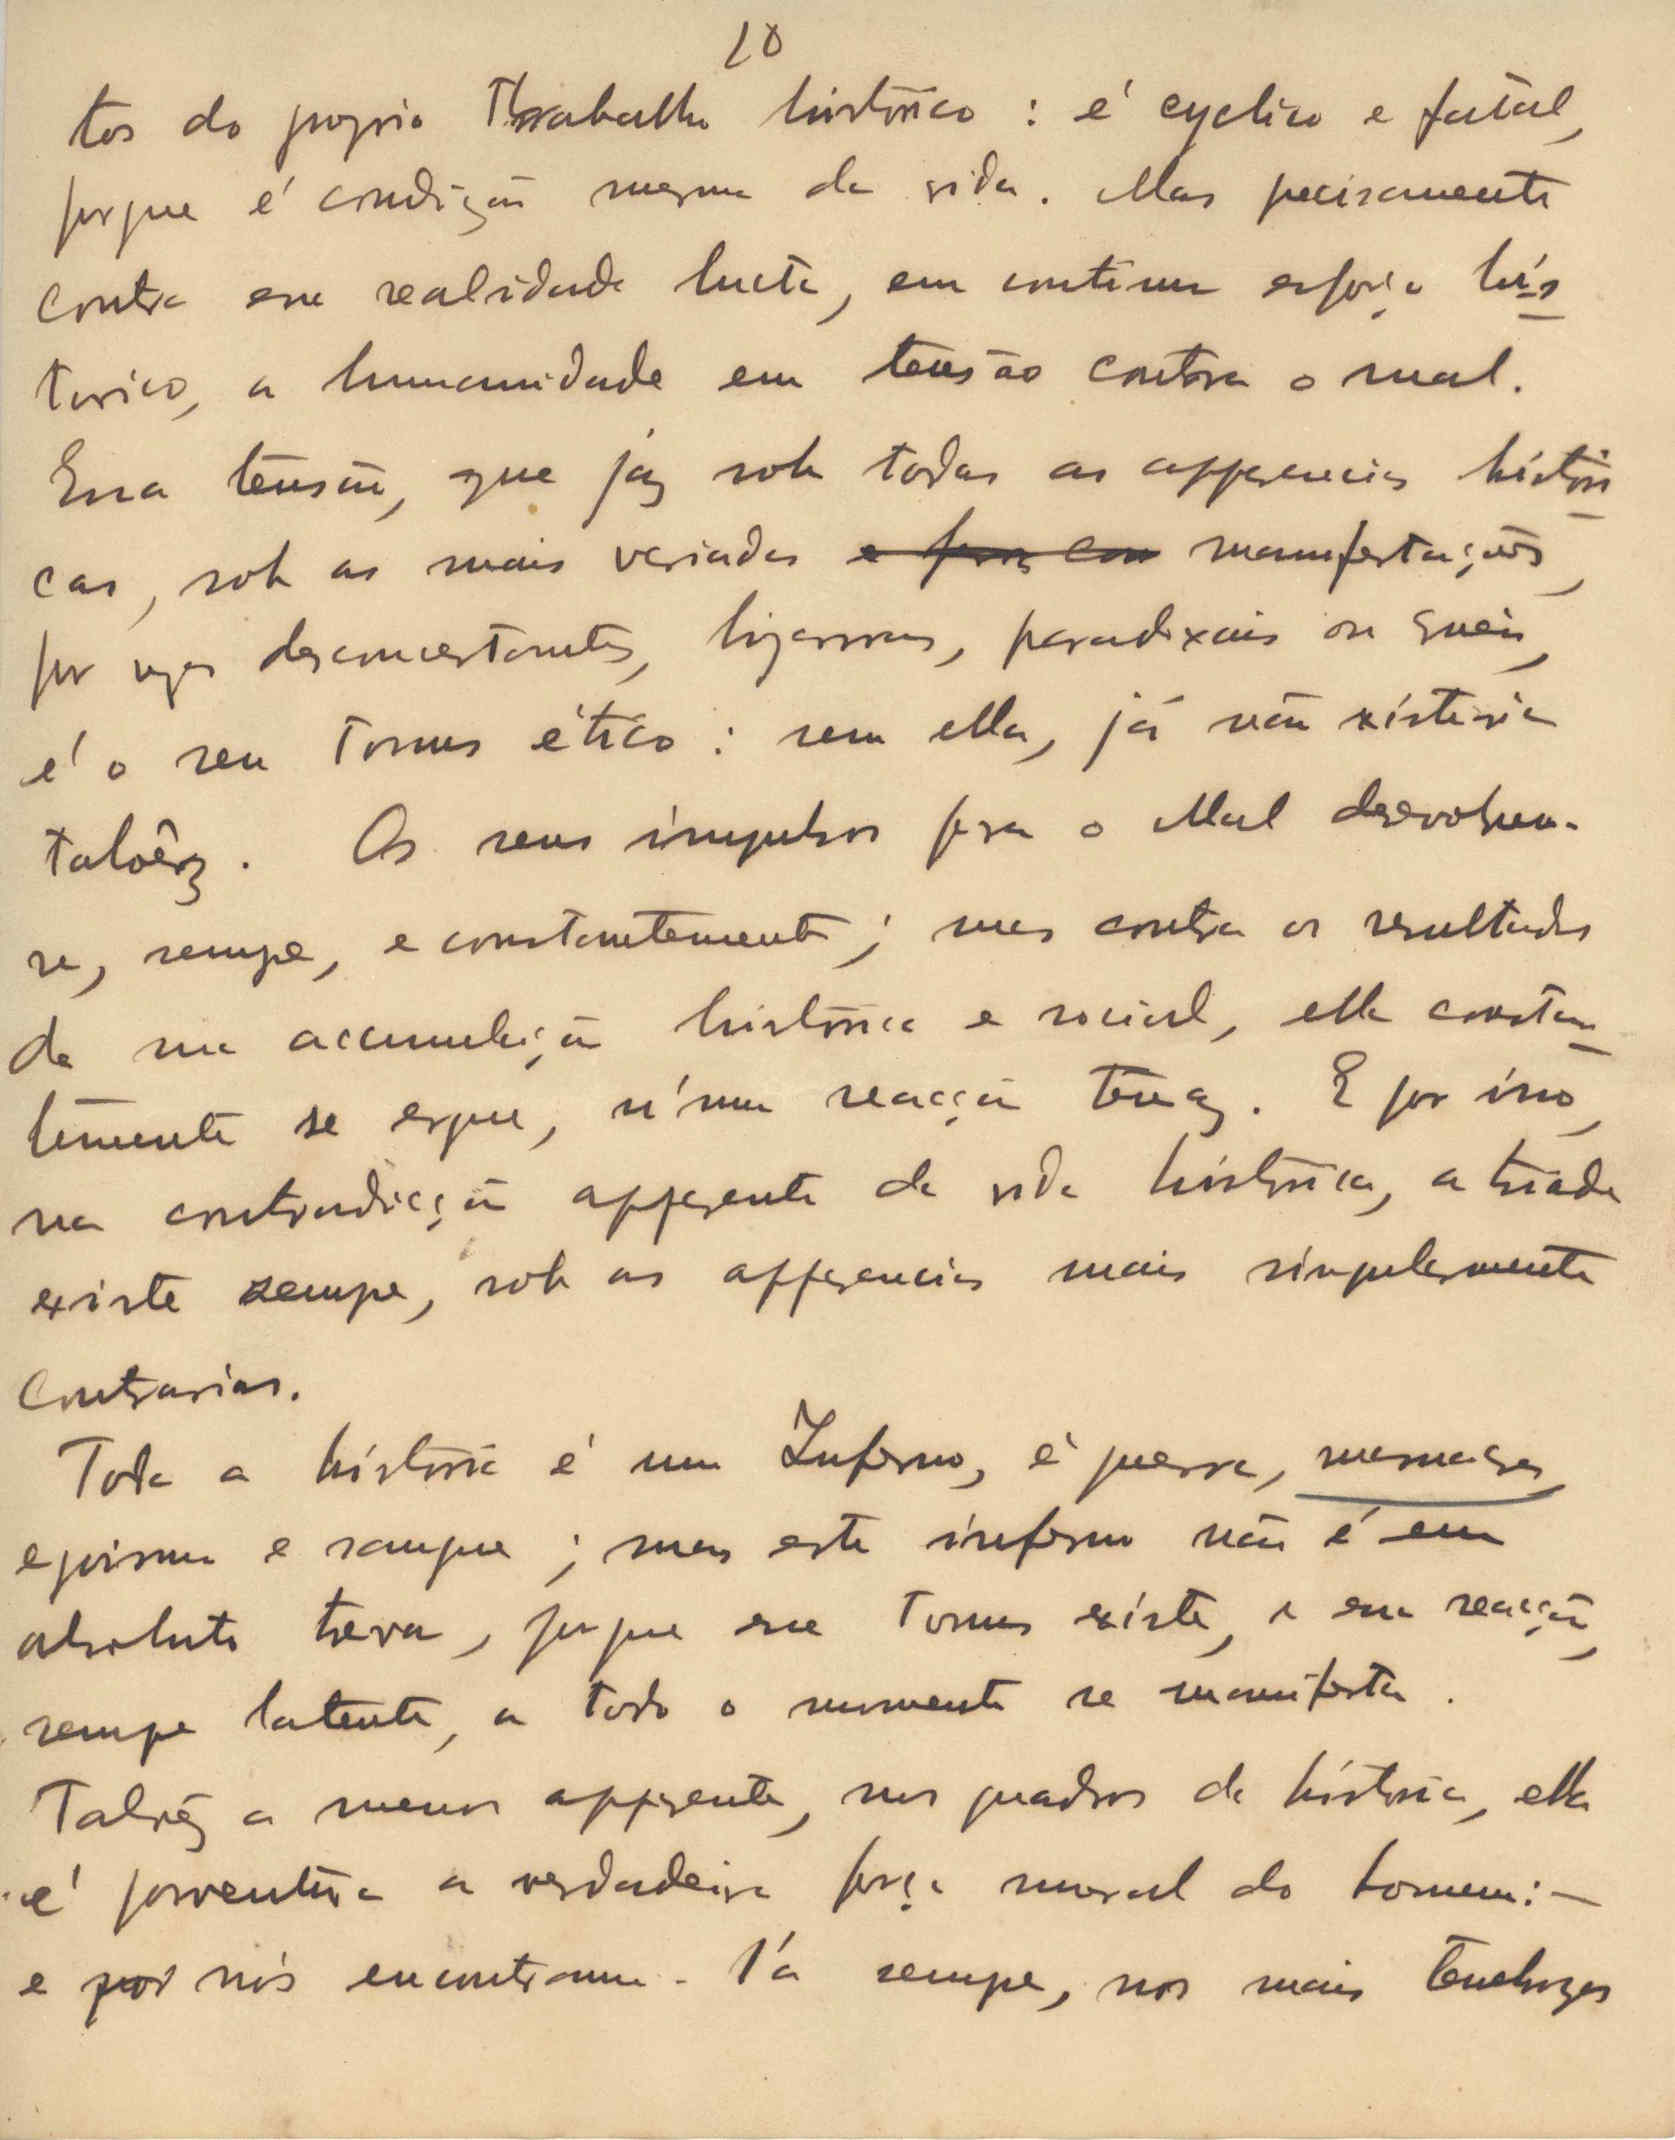 10
tos do proprio Trabalho histórico : é cyclico e fatal,
porque é condição mesma da vida. Mas precisamente
contra essa realidade lucta, em continuo esforço his
torico, a humanidade em tensão contra o mal.
Essa tensão, que jaz sob todas as apparencias histori
cas, sob as mais variadas manifestações,
por vezes desconcertantes, bizarras, paradoxais ou crueis,
é o seu Tonus ético : sem ella, já não existiria
talvêz. Os seus impulsos para o Mal desenvolvem-
se, sempre, e constantemente ; mas contra os resultados
da sua accumulação histórica e social, ella constan
temente se ergue, n'uma reacção tenaz. E por isso,
na contradicção apparente da vida histórica, a triade
existe sempre, sob as apparencias mais singularmente
contrarias.
Toda a história é um Inferno, é guerra,
egoismo e sangue ; mas este inferno não é em
absoluto treva, porque esse Tonus existe, e essa reacção,
sempre latente, a todo o momento se manifesta.
Talvêz a menos apparente, nos quadros da história, ella
é porventura a verdadeira força moral do homem: -
e nós encontramo-l'a sempre, nos mais tenebrosos